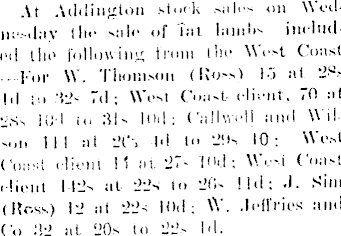 At Addington stock sales on Wed-
nesday the sale of fat lambs includ-
ed the following from the West Coast
—For W. Thomson (Ross) 15 at 28s
4d to 32s 7d; West Coast client, 70 at
28s 10d to 31s 10d; Callwell and Wil-
son 111 at 26s 4d to 29s 10; West
Coast client 14 at 27s 10d; West Coast
client 142s at 22s to 26s 11d; J. Sim
(Ross) 12 at 22s 10d; W. Jeffries and
Co 32 at 20s to 22s 4d.